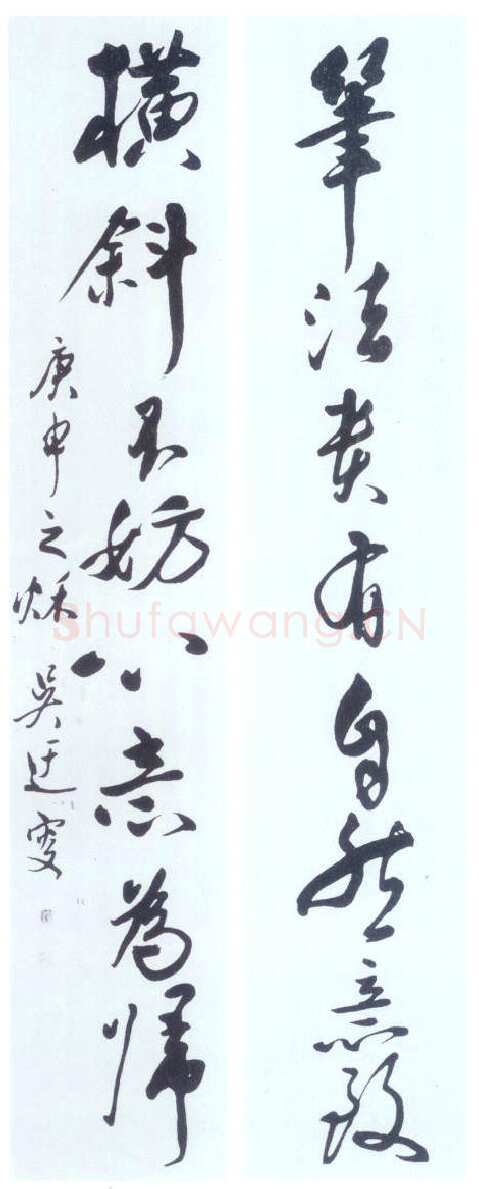 筆法貴有自然意致
橫斜不妨以意為歸
庚申之秋 吳廷
Shufawang.CN